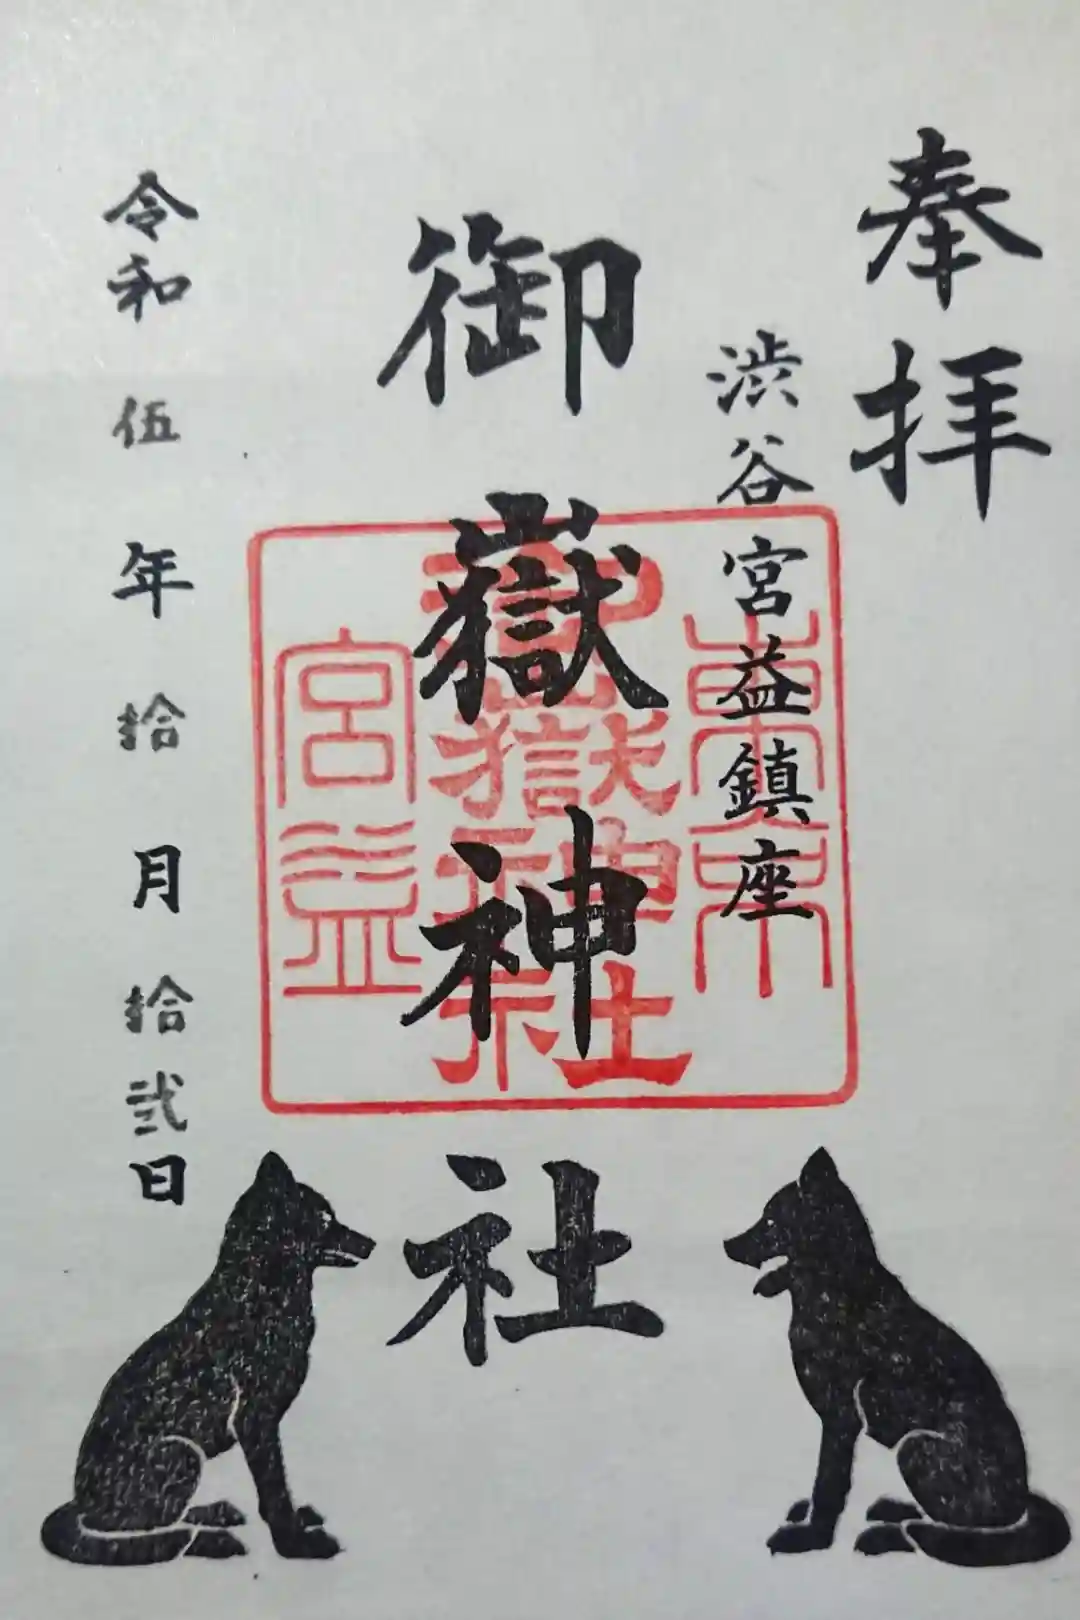 奉拝
渋谷宮益鎮座
御嶽神社
令和伍年拾月拾弐日
東京
御嶽神社
宮益